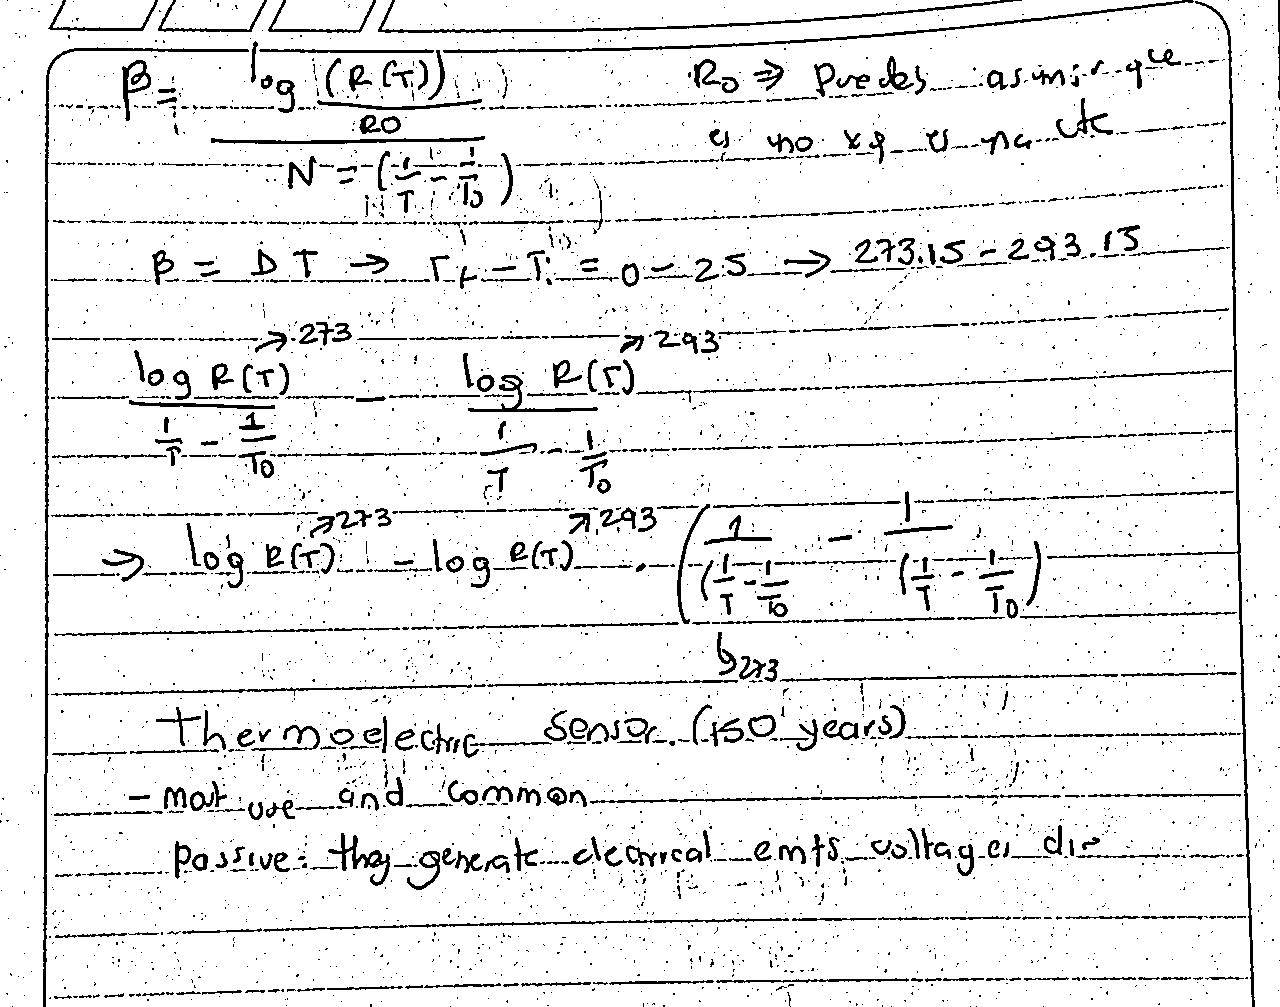 β = log (R(T))
R0
N = (1/T - 1/T0)
R0 ⇒ Puedes asumir que
es no xq es na cte
β = DT → Tf - Ti = 0 - 25 → 273.15 - 293.15
log R(T) → 273 / (1/T - 1/T0) - log R(T) → 293 / (1/T - 1/T0)
⇒ log R(T) → 273 - log R(T) → 293 . (1/(1/T - 1/T0) - 1/(1/T - 1/T0))
↳ 273
Thermoelectric Sensor. (150 years)
- most use and common
passive: they generate electrical emfs voltages di-